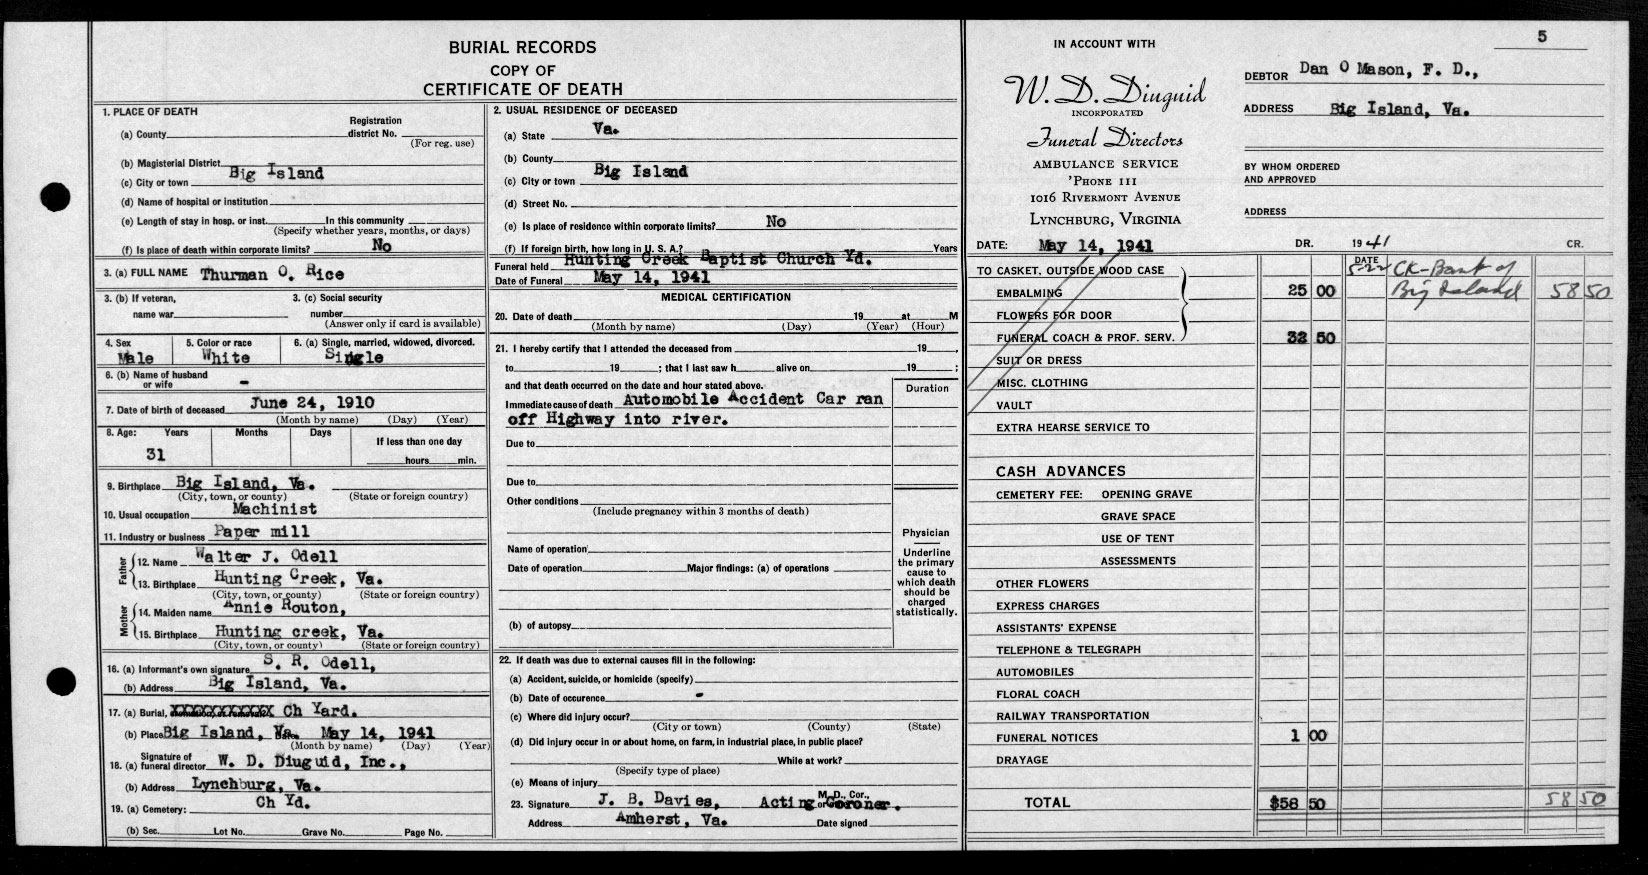 BURIAL RECORDS
COPY OF
CERTIFICATE OF DEATH
1. PLACE OF DEATH
(a) County
Registration
district No.
(For reg. use)
(b) Magisterial District
(c) City or town Big Island
(d) Name of hospital or institution
(e) Length of stay in hosp. or inst. In this community
(Specify whether years, months, or days)
(f) Is place of death within corporate limits? No
3. (a) FULL NAME Thurman O. Rice
3. (b) If veteran,
name war
3. (c) Social security
number
(Answer only if card is available)
4. Sex 5. Color or race 6. (a) Single, married, widowed, divorced.
Male White Single
6. (b) Name of husband
or wife -
7. Date of birth of deceased June 24, 1910
(Month by name) (Day) (Year)
8. Age: Years Months Days If less than one day
31 hours min.
9. Birthplace Big Island, Va.
(City, town, or county) (State or foreign country)
10. Usual occupation Machinist
11. Industry or business Paper mill
Father
12. Name Walter J. Odell
13. Birthplace Hunting Creek, Va.
(City, town, or county) (State or foreign country)
Mother
14. Maiden name Annie Routon,
15. Birthplace Hunting creek, Va.
(City, town, or county) (State or foreign country)
16. (a) Informant's own signature S. R. Odell,
(b) Address Big Island, Va.
17. (a) Burial, XXXXXXXXXXX Ch Yard.
(b) Place Big Island, Va. May 14, 1941
(Month by name) (Day) (Year)
18. (a) Signature of funeral director W. D. Diuguid, Inc.,
(b) Address Lynchburg, Va.
19. (a) Cemetery: Ch Yd.
(b) Sec. Lot No. Grave No. Page No.
2. USUAL RESIDENCE OF DECEASED
(a) State Va.
(b) County
(c) City or town Big Island
(d) Street No.
(e) Is place of residence within corporate limits? No
(f) If foreign birth, how long in U. S. A.? Years
Funeral held Hunting Creek Baptist Church Yd.
Date of Funeral May 14, 1941
MEDICAL CERTIFICATION
20. Date of death 19 at M
(Month by name) (Day) (Year) (Hour)
21. I hereby certify that I attended the deceased from 19 ,
to 19 ; that I last saw h alive on 19 ;
and that death occurred on the date and hour stated above.
Duration
Immediate cause of death Automobile Accident Car ran
off Highway into river.
Due to
Due to
Other conditions
(Include pregnancy within 3 months of death)
Name of operation
Date of operation Major findings: (a) of operations
(b) of autopsy
Physician
Underline
the primary
cause to
which death
should be
charged
statistically.
22. If death was due to external causes fill in the following:
(a) Accident, suicide, or homicide (specify)
(b) Date of occurence -
(c) Where did injury occur?
(City or town) (County) (State)
(d) Did injury occur in or about home, on farm, in industrial place, in public place?
While at work?
(Specify type of place)
(e) Means of injury
M.D., Cor.,
23. Signature J. B. Davies, Acting or Coroner.
Address Amherst, Va. Date signed
IN ACCOUNT WITH
W. D. Diuguid
INCORPORATED
Funeral Directors
AMBULANCE SERVICE
'PHONE 111
1016 RIVERMONT AVENUE
LYNCHBURG, VIRGINIA
5
DEBTOR Dan O Mason, F. D.,
ADDRESS Big Island, Va.
BY WHOM ORDERED
AND APPROVED
ADDRESS
DATE: May 14, 1941 DR. 1941 CR.
TO CASKET, OUTSIDE WOOD CASE DATE 5-22 CK-Bank of
EMBALMING 25 00 Big Island 58 50
FLOWERS FOR DOOR
FUNERAL COACH & PROF. SERV. 32 50
SUIT OR DRESS
MISC. CLOTHING
VAULT
EXTRA HEARSE SERVICE TO
CASH ADVANCES
CEMETERY FEE: OPENING GRAVE
GRAVE SPACE
USE OF TENT
ASSESSMENTS
OTHER FLOWERS
EXPRESS CHARGES
ASSISTANTS' EXPENSE
TELEPHONE & TELEGRAPH
AUTOMOBILES
FLORAL COACH
RAILWAY TRANSPORTATION
FUNERAL NOTICES 1 00
DRAYAGE
TOTAL $58 50 58 50